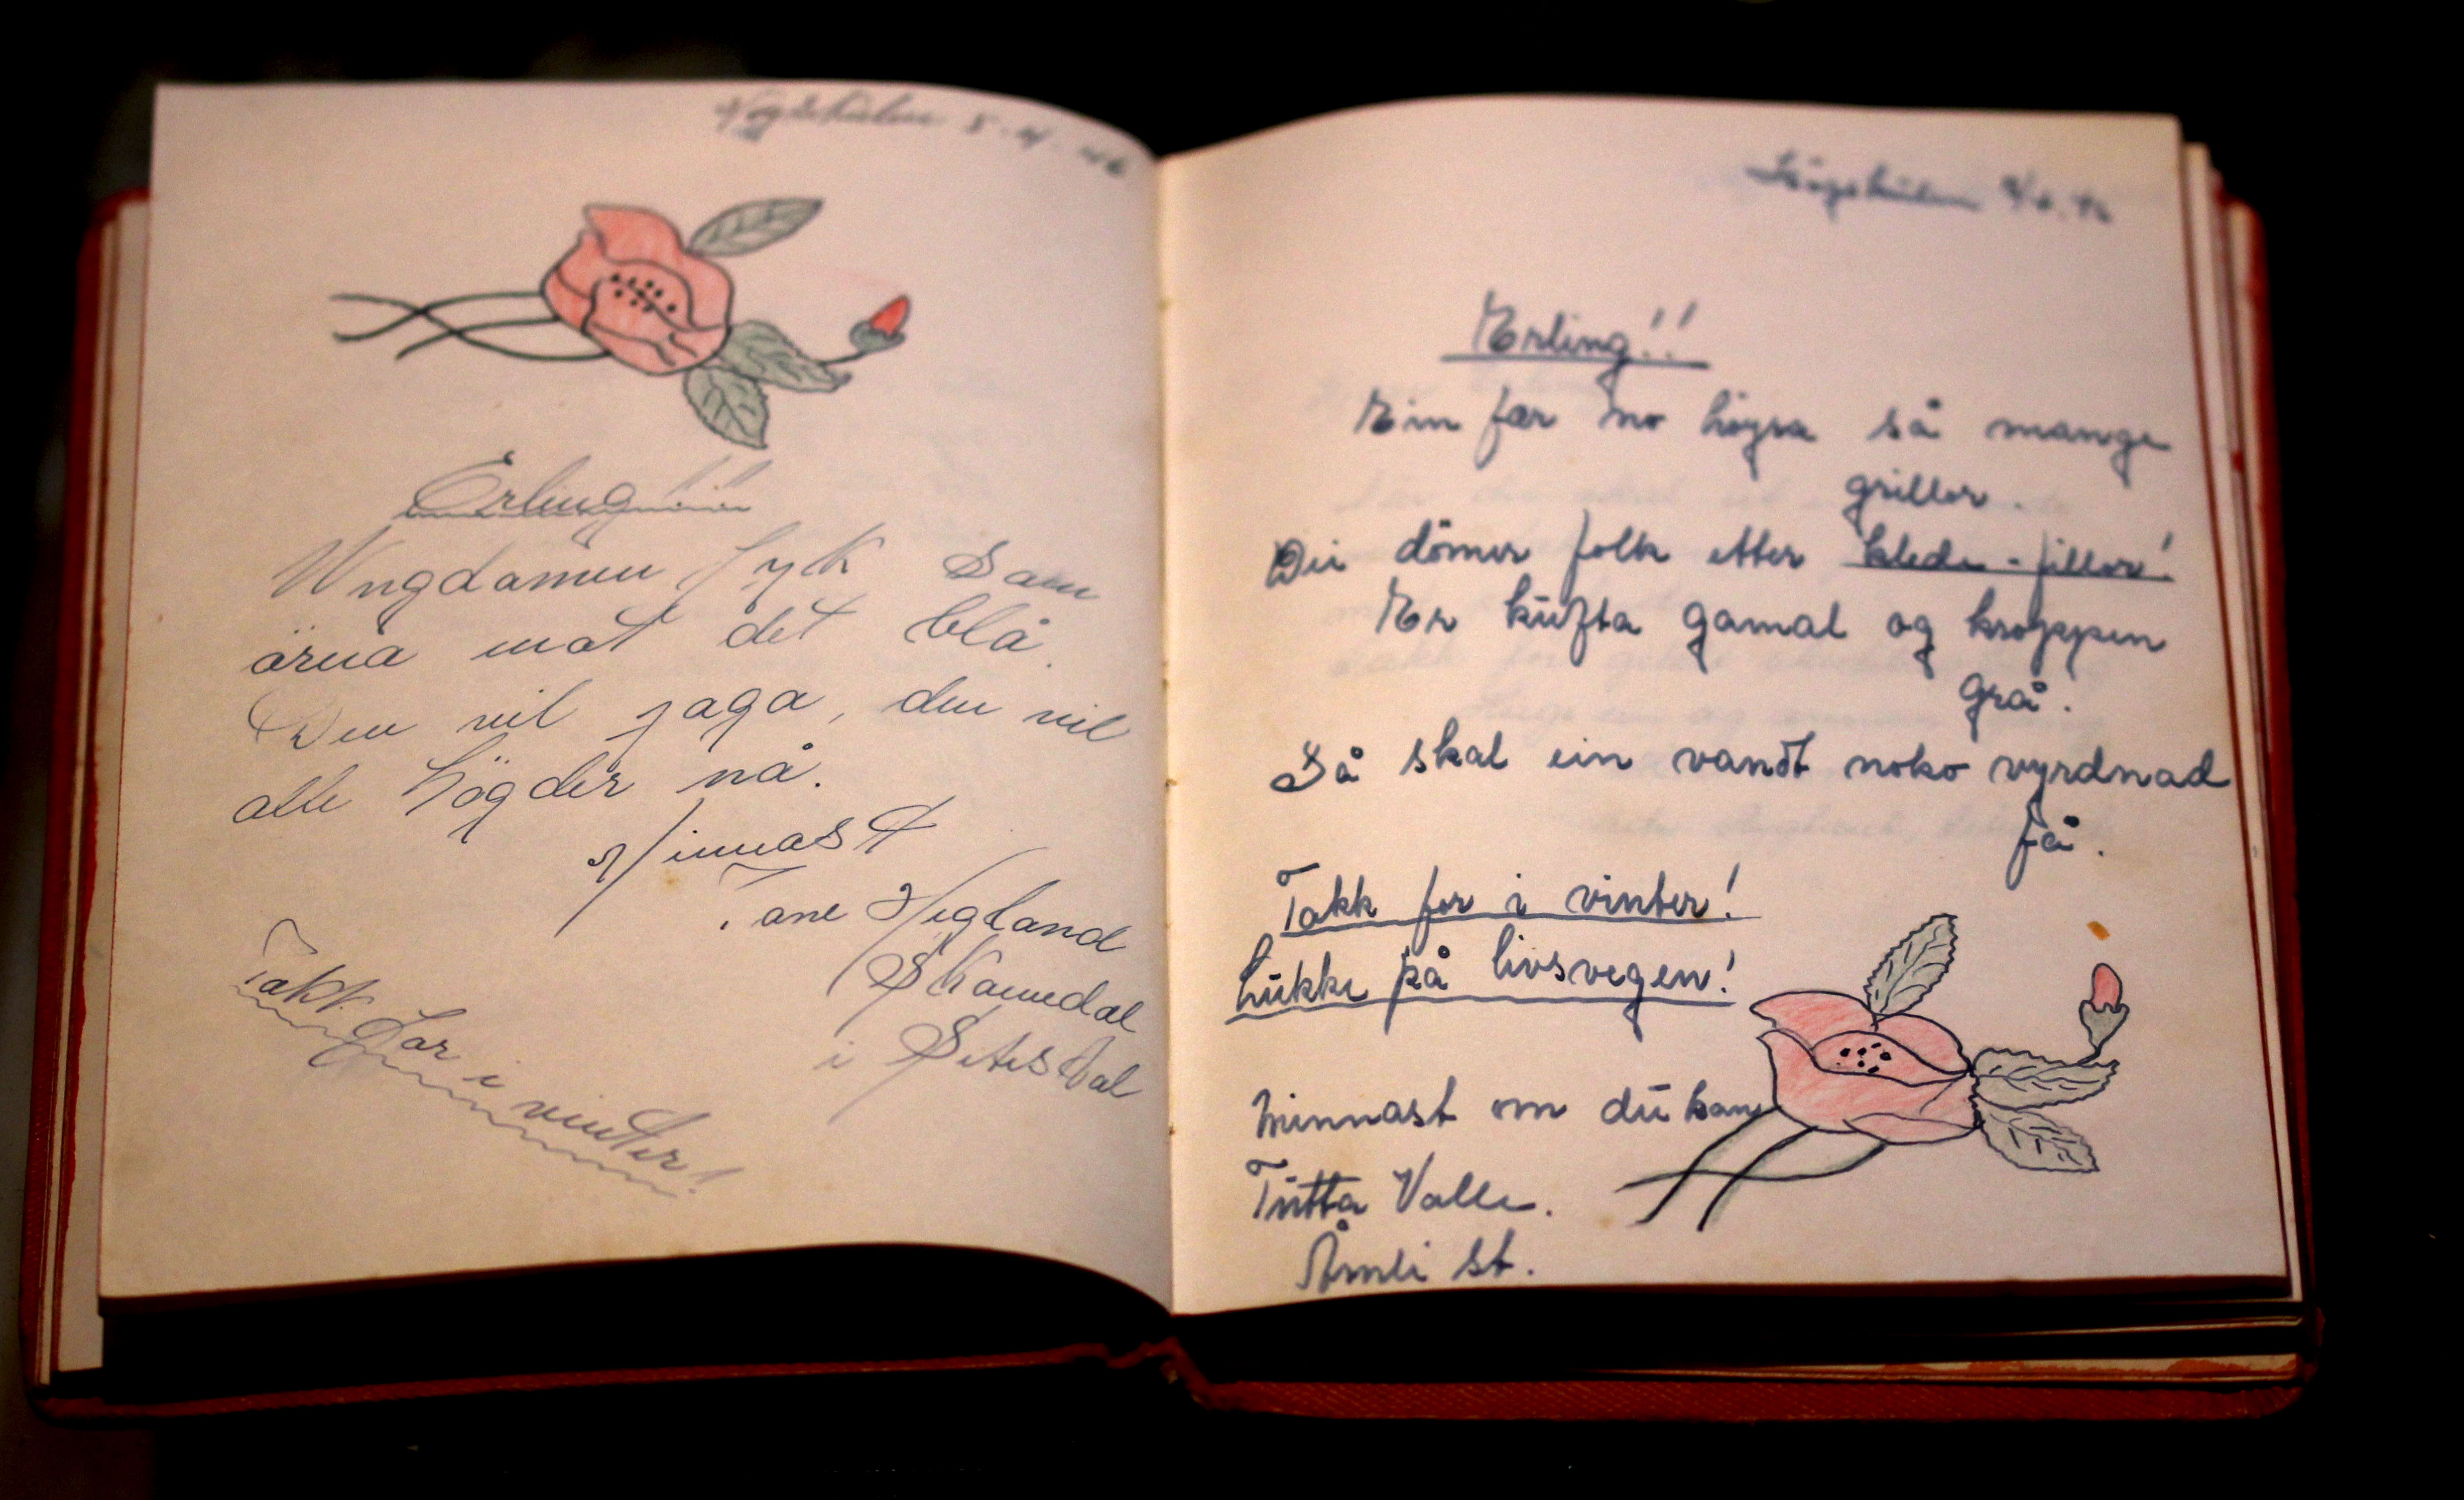 5-4-46
Erling!!
Ungdomen fyk som
örna mot det blå.
Den vil jaga, den vil
alle högder nå.
Minnast
Tone Rigland
i Setesdal
Takk for i vinter!
Erling!!
Ein fær no höyra så mange
grillor.
Dei dömer folk etter klede-fillor!
Er kufta gamal og kroppen
grå.
Så skal ein vandt noko vyrdnad
få.
Takk for i vinter!
Lukke på livsvegen!
Minnast om du kan
Tutta Valle.
Åmli st.